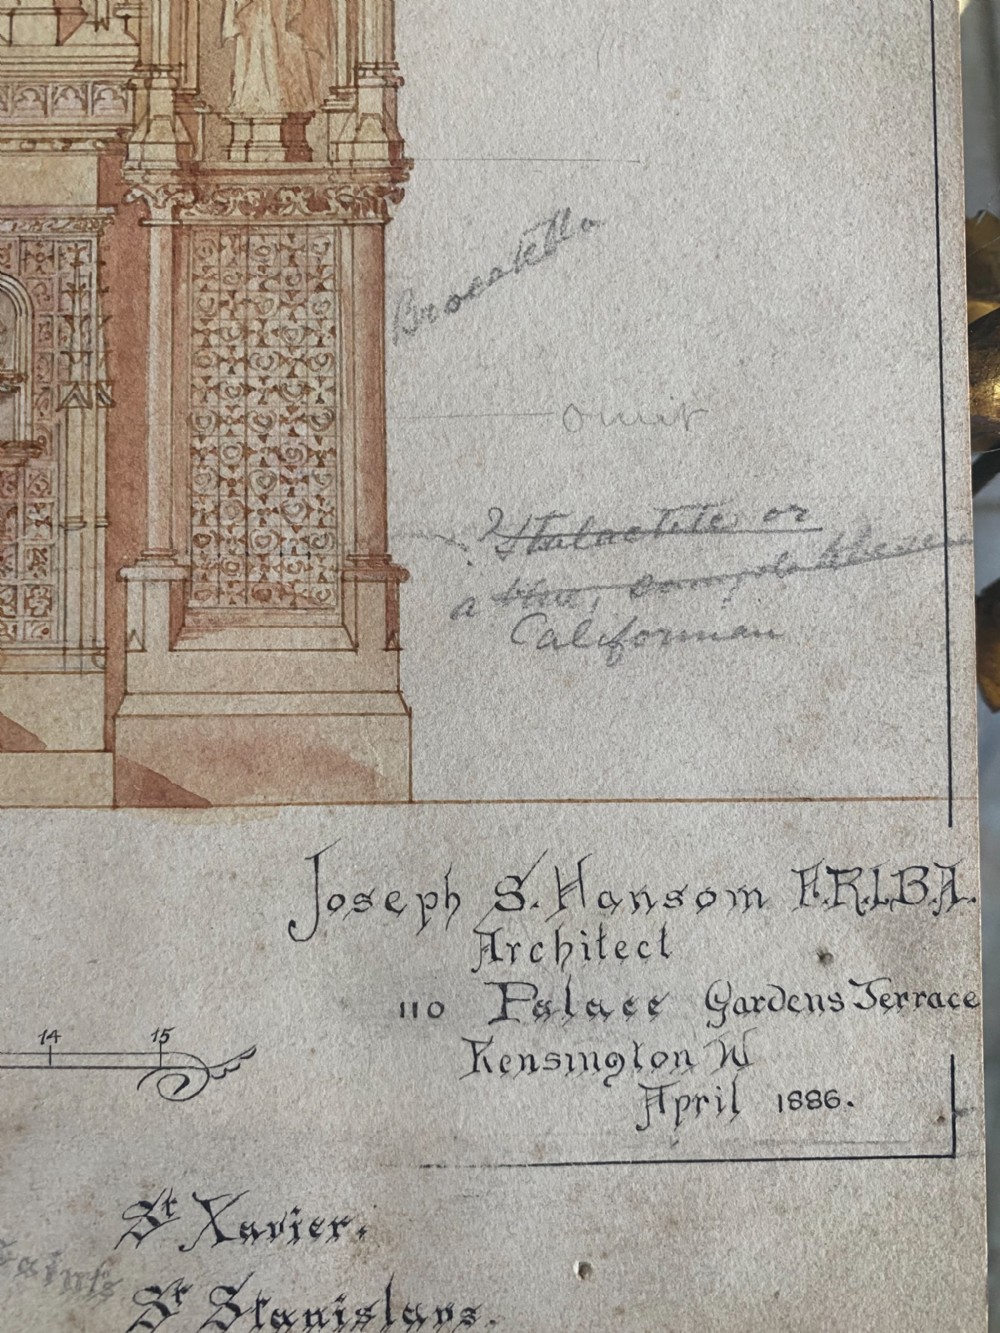 Brocatella
Omit
? Stalactite or
a
Californian
Joseph S. Hansom F.R.I.B.A.
Architect
110 Palace Gardens Terrace
Kensington W
April 1886.
14 15
St Xavier.
Saints
St Stanislaus.